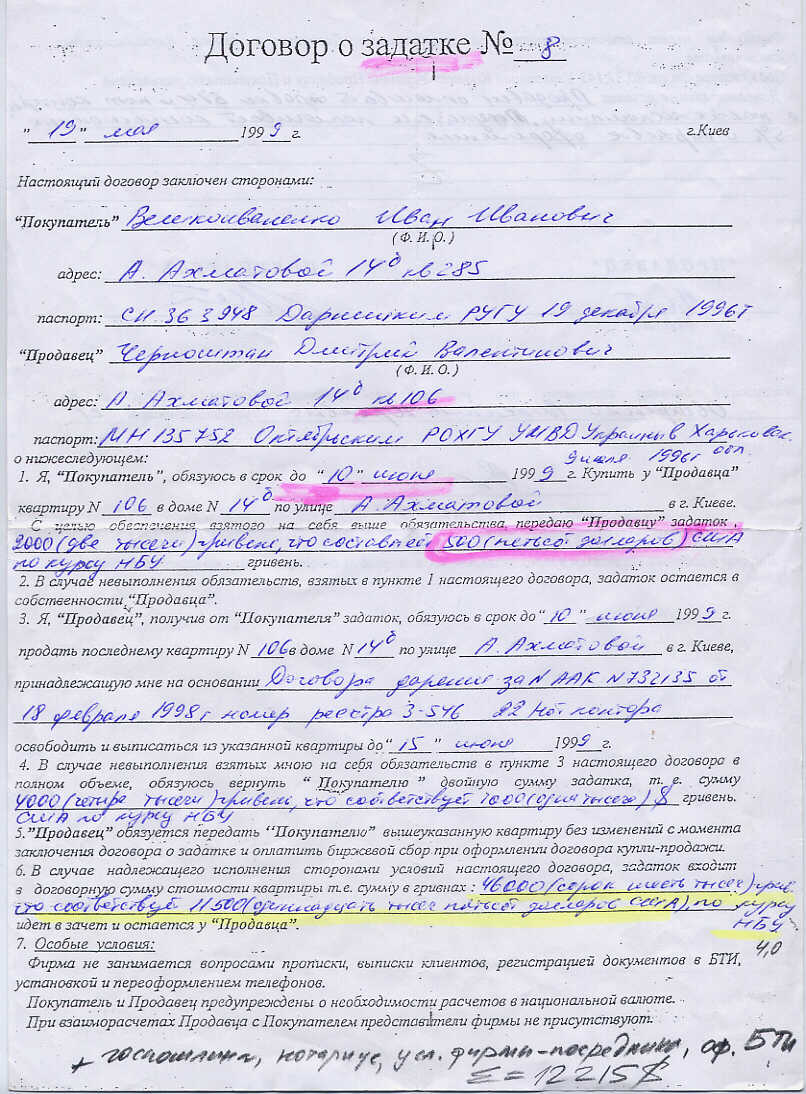 Договор о задатке № 8
"19" мая 1999 г. г.Киев
Настоящий договор заключен сторонами:
"Покупатель" Великоиваненко Иван Иванович
( Ф. И. О. )
адрес: А. Ахматовой 14б кв 285
паспорт: СН 363948 Дарницким РУГУ 19 декабря 1996г
"Продавец" Черноштан Дмитрий Валентинович
( Ф. И. О. )
адрес: А. Ахматовой 14б кв 106
паспорт: МН 135752 Октябрьским РОХГУ УМВД Украины в Харьковск.
о нижеследующем: 9 июля 1996г обл.
1. Я, "Покупатель", обязуюсь в срок до "10" июня 1999 г. Купить у "Продавца"
квартиру N 106 в доме N 14б по улице А. Ахматовой в г. Киеве.
С целью обеспечения взятого на себя выше обязательства, передаю "Продавцу" задаток ,
2000 (две тысячи) гривень, что составляет 500 (пятьсот долларов) США
по курсу НБУ гривен.
2. В случае невыполнения обязательств, взятых в пункте 1 настоящего договора, задаток остается в
собственности "Продавца".
3. Я, "Продавец", получив от "Покупателя" задаток, обязуюсь в срок до "10" июня 1999 г.
продать последнему квартиру N 106 в доме N 14б по улице А. Ахматовой в г. Киеве,
принадлежащую мне на основании Договора дарения за N ААК N 732135 от
18 февраля 1998 г номер реестра 3-546 22 Нот контора
освободить и выписаться из указанной квартиры до "15" июня 1999 г.
4. В случае невыполнения взятых мною на себя обязательств в пункте 3 настоящего договора в
полном объеме, обязуюсь вернуть " Покупателю " двойную сумму задатка, т. е. сумму
4000 (четыре тысячи) гривень, что соответствует 1000 (одна тысяча) $ гривень.
США по курсу НБУ
5."Продавец" обязуется передать "Покупателю" вышеуказанную квартиру без изменений с момента
заключения договора о задатке и оплатить биржевой сбор при оформлении договора купли-продажи.
6. В случае надлежащего исполнения сторонами условий настоящего договора, задаток входит
в договорную сумму стоимости квартиры т.е. сумму в гривнах : 46000 (сорок шесть тысяч) грив.
что соответствует 11500 (одиннадцать тысяч пятьсот долларов США), по курсу
идет в зачет и остается у "Продавца". НБУ
7. Особые условия: 4,0
Фирма не занимается вопросами прописки, выписки клиентов, регистрацией документов в БТИ,
установкой и переоформлением телефонов.
Покупатель и Продавец предупреждены о необходимости расчетов в национальной валюте.
При взаиморасчетах Продавца с Покупателем представители фирмы не присутствуют.
+ госпошлина, нотариус, усл. фирмы-посредника, оф. БТИ
Σ = 12215$